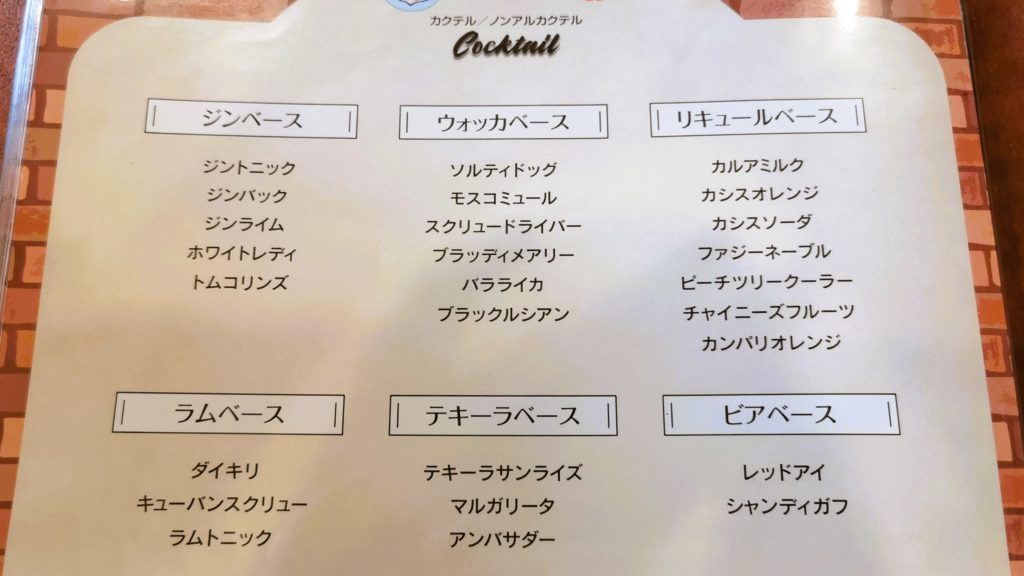 カクテル／ノンアルカクテル
Cocktail
ジンベース
ジントニック
ジンバック
ジンライム
ホワイトレディ
トムコリンズ
ウォッカベース
ソルティドッグ
モスコミュール
スクリュードライバー
ブラッディメアリー
バラライカ
ブラックルシアン
リキュールベース
カルアミルク
カシスオレンジ
カシスソーダ
ファジーネーブル
ピーチツリークーラー
チャイニーズフルーツ
カンパリオレンジ
ラムベース
ダイキリ
キューバンスクリュー
ラムトニック
テキーラベース
テキーラサンライズ
マルガリータ
アンバサダー
ビアベース
レッドアイ
シャンディガフ